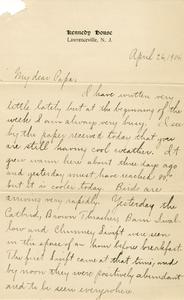 Kennedy House
Lawrenceville, N. J.
April 26, 1904
My dear Papa:
I have written very
little lately but at the beginning of the
week I am always very busy. I see
by the paper received today that you
are still having cool weather. It
grew warm here about three days ago
and yesterday must have reached 80°
but it is cooler today. Birds are
arriving very rapidly. Yesterday the
Catbird, Brown Thrasher, Barn Swal-
low and Chimney Swift were seen
in the space of an hour before breakfast.
The first Swift came at that time, and
by noon they were positively abundant
and to be seen everywhere.